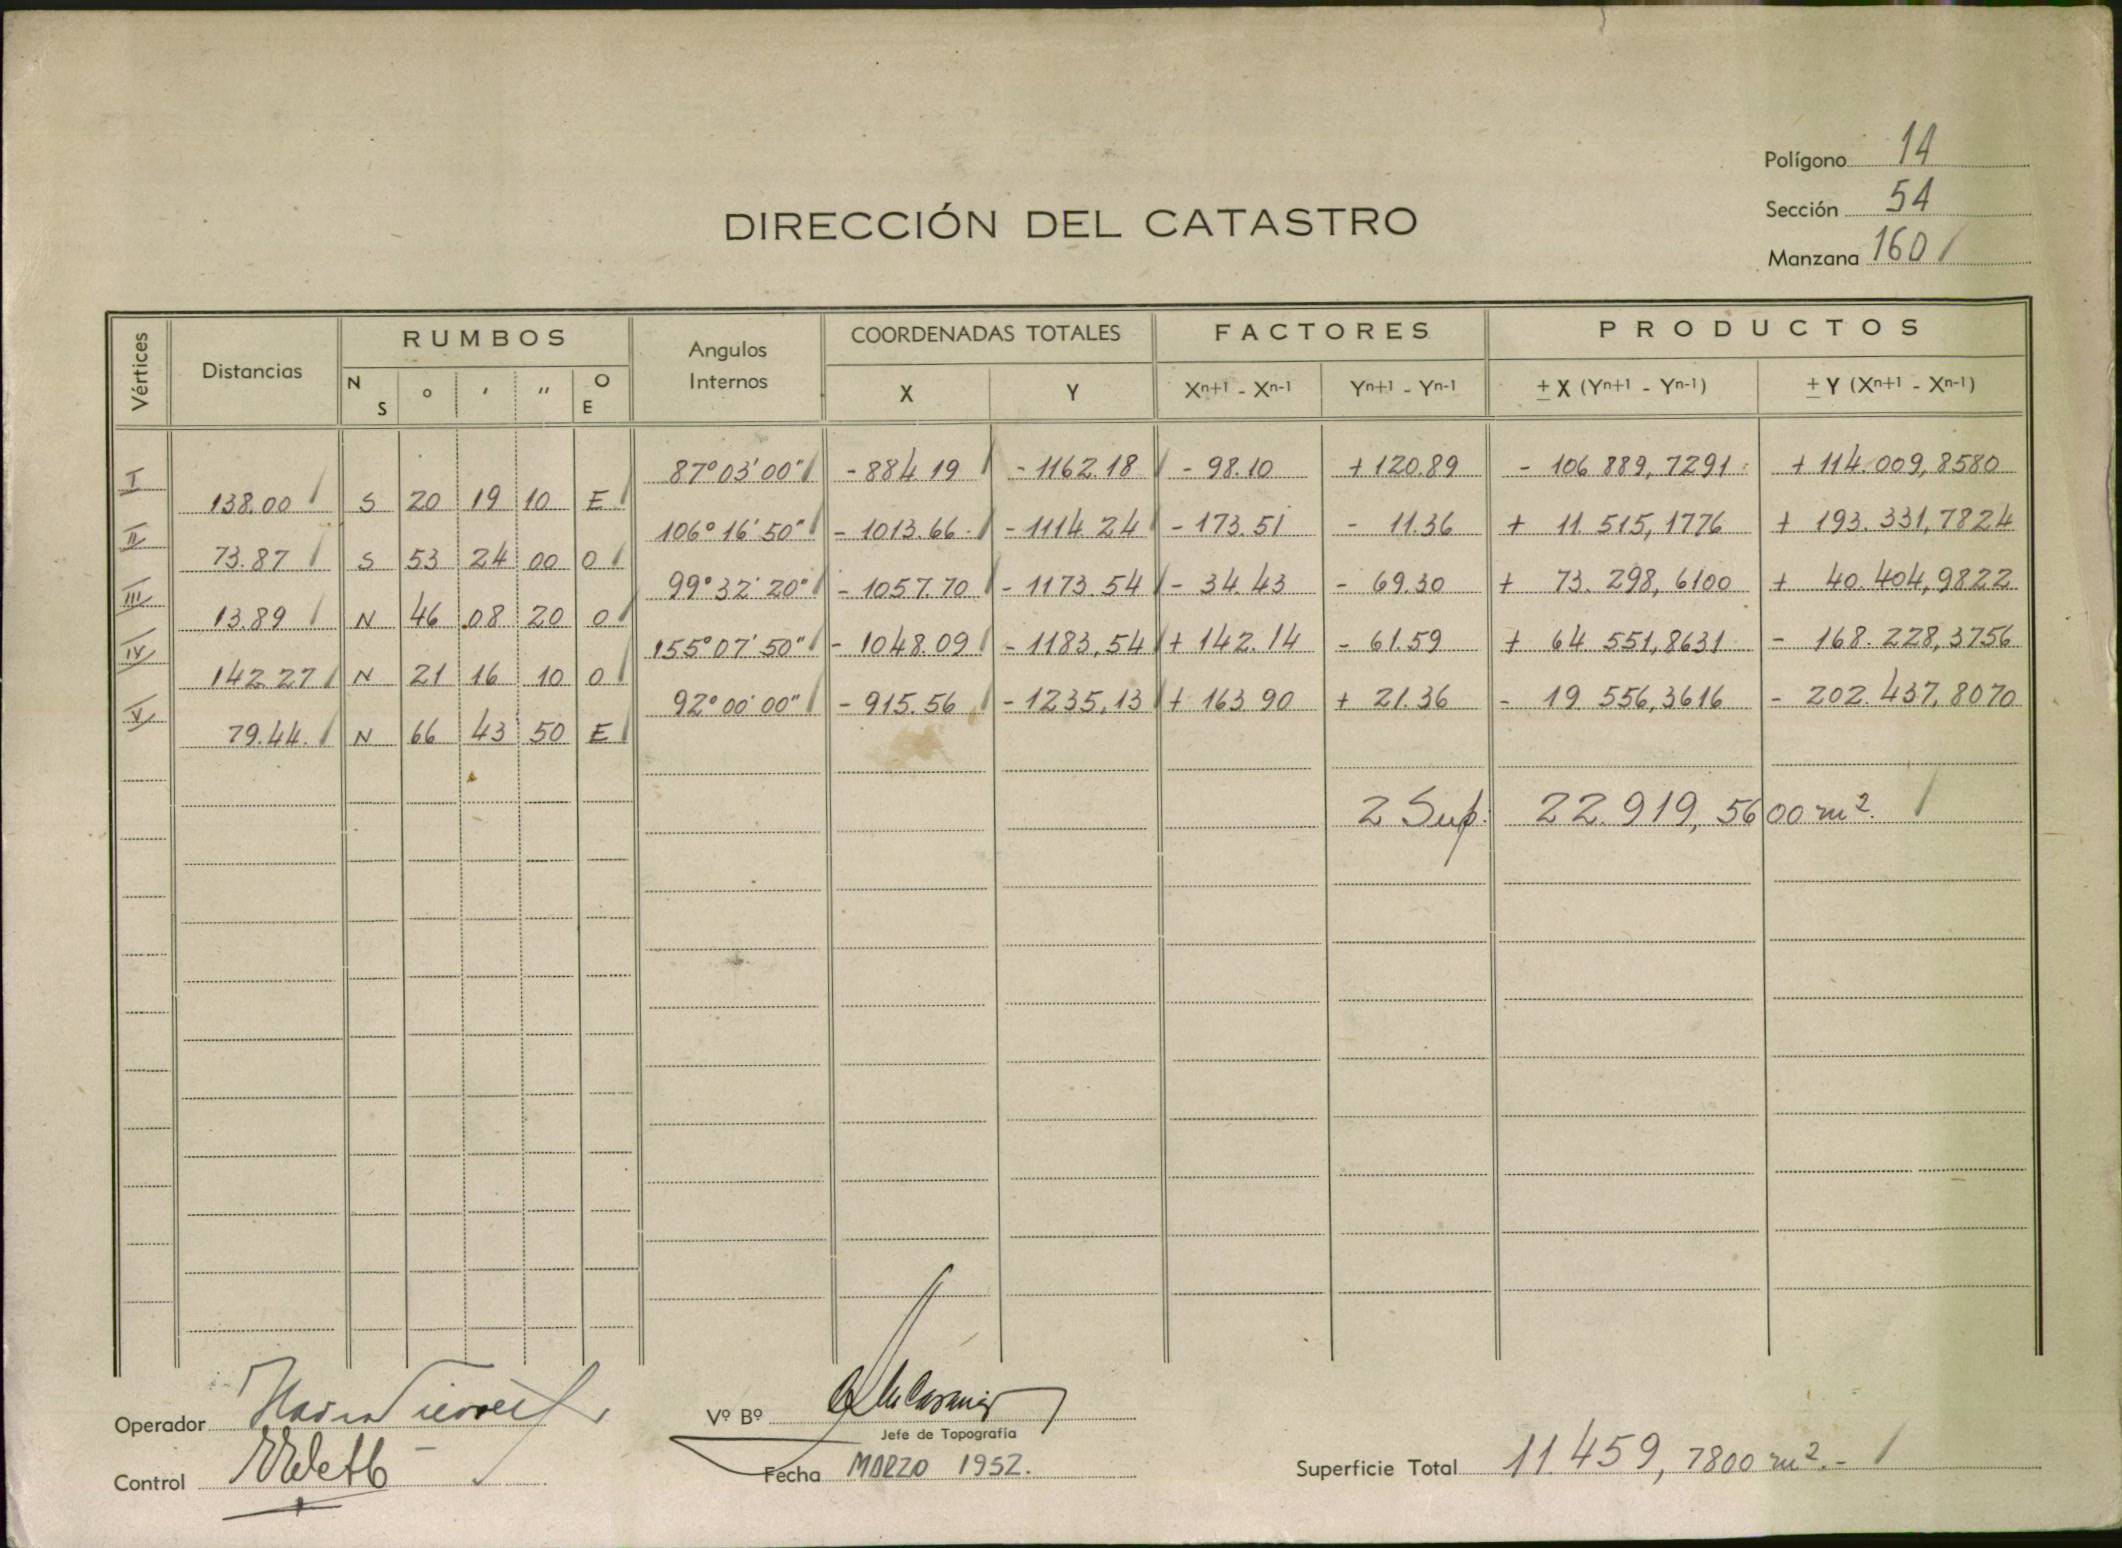 Polígono 14
Sección 54
Manzana 160
DIRECCIÓN DEL CATASTRO
Vértices Distancias RUMBOS Angulos Internos COORDENADAS TOTALES FACTORES PRODUCTOS
N S ° ' " O E X Y Xn+1 - Xn-1 Yn+1 - Yn-1 ± X (Yn+1 - Yn-1) ± Y (Xn+1 - Xn-1)
I 87°03'00" - 884.19 - 1162.18 - 98.10 + 120.89 - 106 889,7291 + 114.009,8580
138.00 S 20 19 10 E
II 106°16'50" - 1013.66 - 1114.24 - 173.51 - 11.36 + 11.515,1776 + 193.331,7824
73.87 S 53 24 00 O
III 99°32'20" - 1057.70 - 1173.54 - 34.43 - 69.30 + 73.298,6100 + 40.404,9822
13.89 N 46 08 20 O
IV 155°07'50" - 1048.09 - 1183,54 + 142.14 - 61.59 + 64 551,8631 - 168.228,3756
142.27 N 21 16 10 O
V 92°00'00" - 915.56 - 1235,13 + 163 90 + 21.36 - 19 556,3616 - 202.437,8070
79.44. N 66 43 50 E
2 Sup. 22.919,5600 m².
Operador
Vº Bº
Jefe de Topografía
Control
Fecha MARZO 1952.
Superficie Total 11.459,7800 m².-